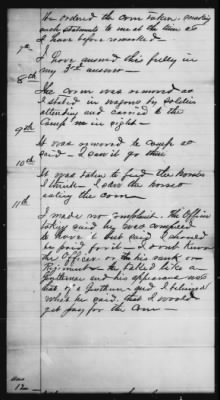 He ordered the corn taken, making
such statements to me at the time as
I have before remarked
7th
I have answd this fully in
my 3rd answer —
8th
The corn was removed as
I stated in wagons by soldiers
attending and carried to the
Camp in sight —
9th
It was removed to camp as
said — I saw it go there
10th
It was taken to feed the horses
I think — I saw the horses
eating the corn —
11th
I made no complaint. The Officer
taking said he was compelled
to have it but said I should
be paid for it — I dont know
the Officer or the his rank or
Regiment — he talked like a
gentleman and his appearance was
that of a Gentleman — and I believed
what he said, that I would
get pay for the corn —
12